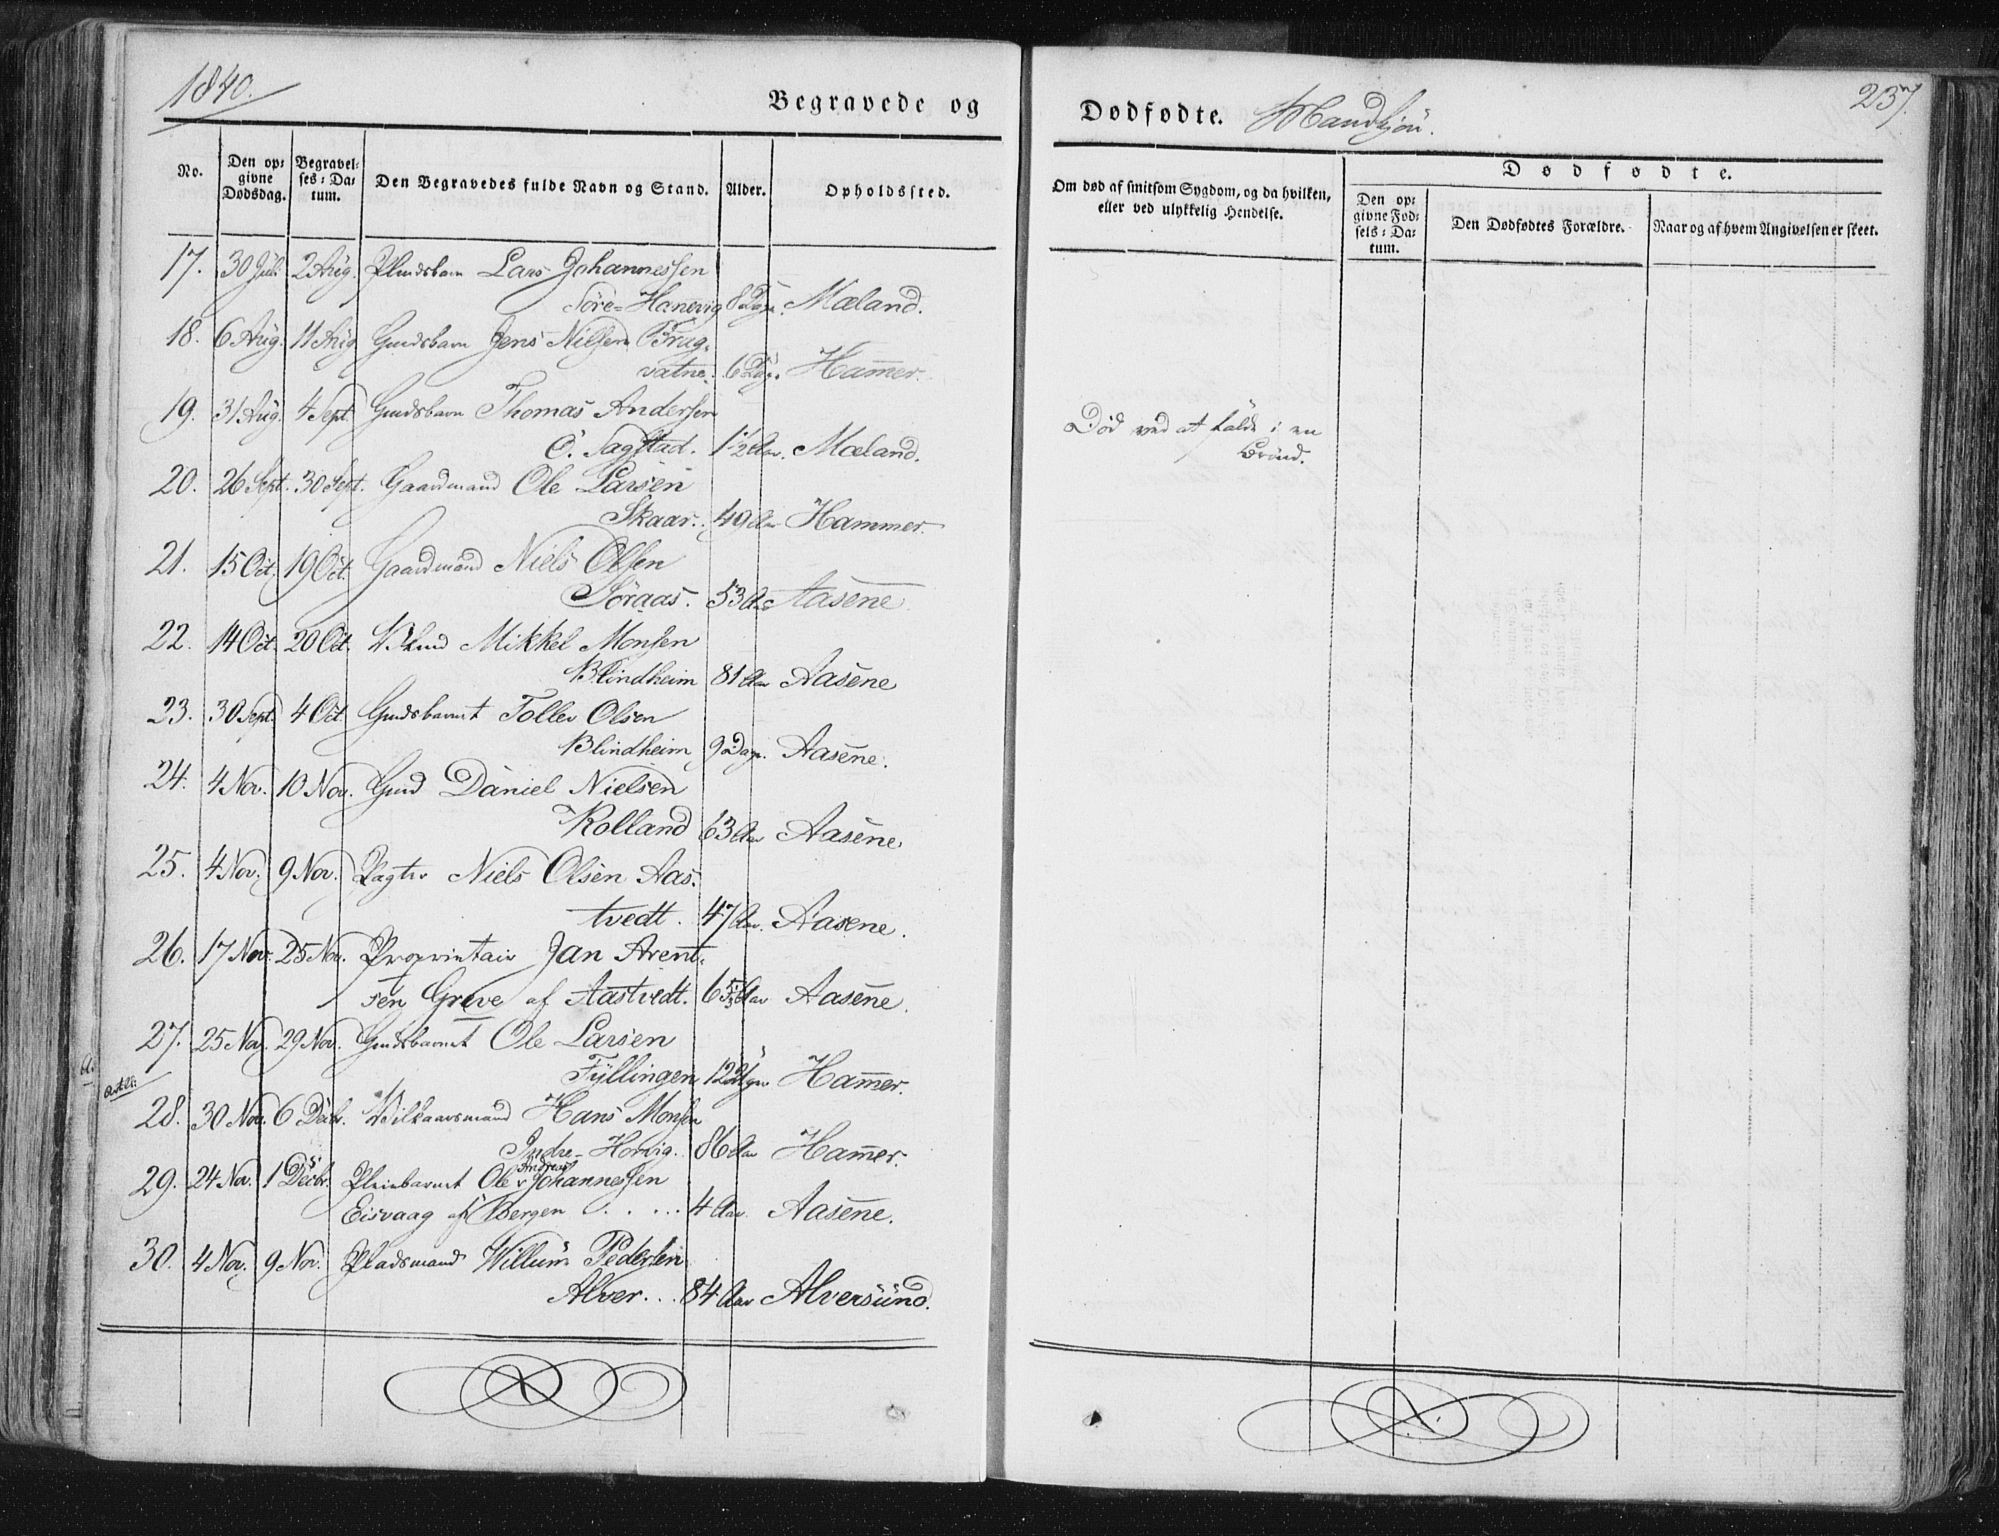 1840.
Begravede og
Dødfødte. Mandkjøn.
237.
No.
Den opgivne Dødsdag.
Begravelses-Datum.
Den Begravedes fulde Navn og Stand.
Alder.
Opholdssted.
Om død af smitsom Sygdom, og da hvilken, eller ved ulykkelig Hendelse.
Dødfødte.
Den opgivne Fødsels-Datum.
Den Dødfødtes Forældre.
Naar og af hvem Angivelsen er skeet.
17. 30 Jul. 2 Aug. Lars Johannessen
Söre-Hanevig 8 Dage. Mæland.
18. 6 Aug. 11 Aug. Gmdsbarn Jens Nilsen Brag-
vatne. 6 Dag. Ham̅er.
19. 31 Aug. 4 Sept. Gmdsbarn Thomas Andersen
Ö. Sagstad. 1½ Aar. Mæland.
Død ved at falde i en
Brönd.
20. 26 Sept. 30 Sept. Gaardmand Ole Larsen
Skaar. 49 Aar Hammer.
21. 15 Oct. 19 Oct. Gaardmand Niels Olsen
Söraas. 53 Aar Aasene.
22. 14 Oct. 20 Oct. Mikkel Monsen
Blindheim 81 Aar Aasene
23. 30 Sept. 4 Oct. Gmdsbarnet Toller Olsen
Blindheim 9 Dage. Aasene.
24. 4 Nov. 10 Nov. Gmd Daniel Nielsen
Rolland 63 Aar Aasene.
25. 4 Nov. 9 Nov. Pagter Niels Olsen Aas-
tvedt. 47 Aar. Aasene.
26. 17 Nov. 25 Nov. Proprietair Jan Arent-
sen Greve af Aastvedt. Aar Aasene.
27. 25 Nov. 29 Nov. Gmdsbarnet Ole Larsen
Fyllingen Ham̅er.
28. 30 Nov. 6 Decbr. Vilkaarsmand Hans Monsen
Indre-Horvig. 86 Aar Ham̅er.
29. 24 Nov. 1 Decbr. Pleiebarnet Ole Andreas Johannessen
Eisvaag af Bergen .... 4 Aar. Aasene.
30. 4 Nov. 9 Nov. Pladsmand Willum Pedersen
Alver... 84 Aar Alversund.